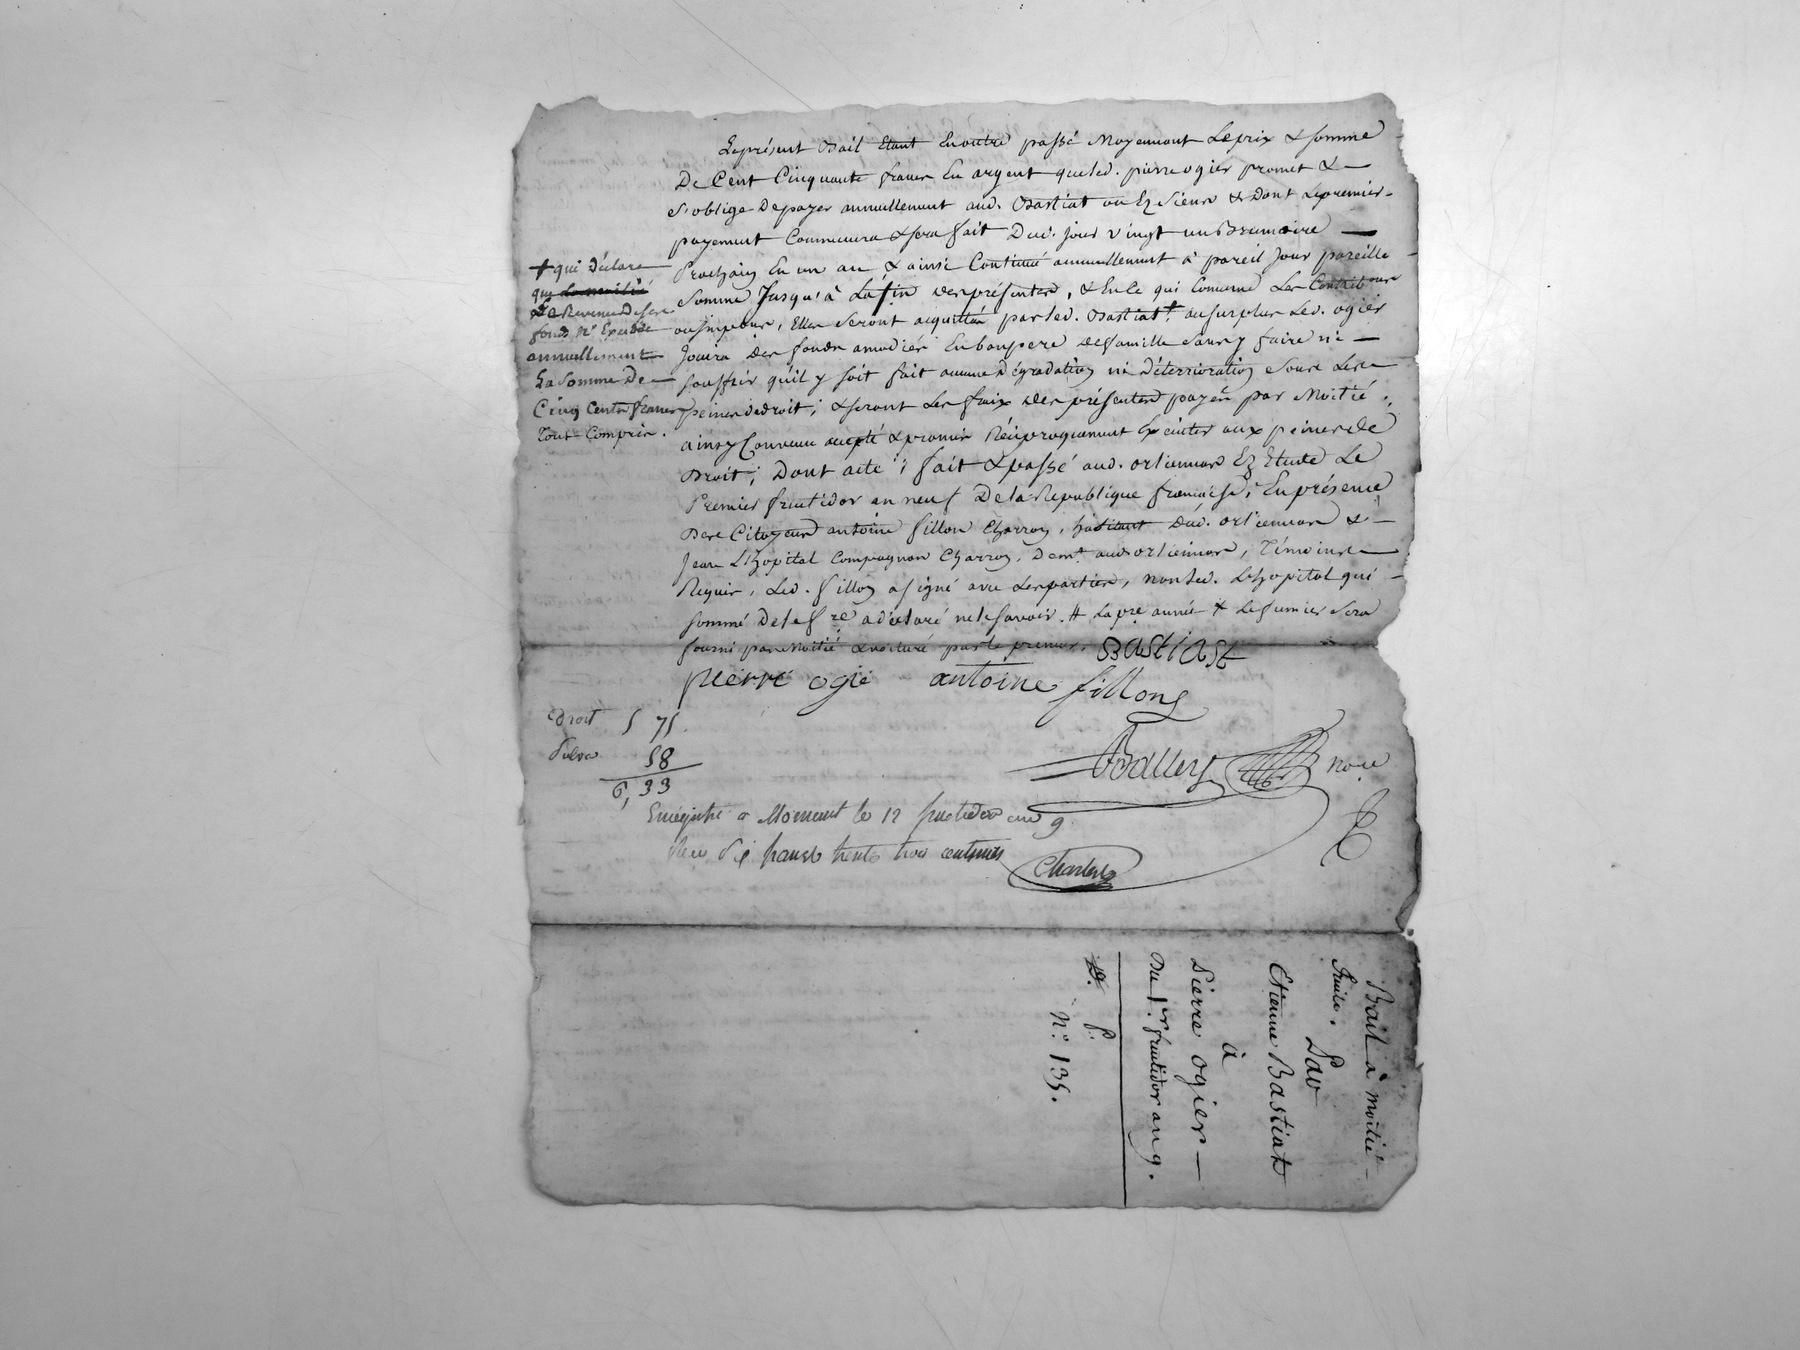 Leprésent Bail Etant Enoutre passé Moyennant Leprix & somme
De Cent Cinquante francs En argent queled. pierre ogier promet &
s'oblige Depayer annuellement aud. Bastiat ou Ez Siens & Dont Lepremier
payement Commencera & sera fait Dud. jour vingt un Brumaire
Prochain En un an, & ainsi Continué annuellement à pareil Jour pareille
somme Jusqu'à Lafin desprésentes, & Ence qui Concerne Les Contributions
ou impôts, Elles seront acquittées parled. Bastiat + ausurplus Led. ogier
Jouira des fonds amodiés Enbonpere defamille sans y faire ni
souffrir qu'il y soit fait aucune Dégradation ni Déterrioration sous Les
peines dedroit; & seront Les fraix des présentes payés par Moitié.
ainsy Convenu accepté & promis Réciproquement Exécuter aux peines de
Droit; Dont acte; fait & passé aud. orliennas Ez Etude Le
Premier fructidor an neuf De la Republique française; Enprésence
Des Citoyens antoine fillon Charron, habitant Dud. orliennas &
Jean L'hopital Compagnon Charron, Demt. aud orliennas, Témoins
Requis, Led. fillon a signé avec Lesparties, non Led. L'hopital qui
sommé Delefre adéclaré nelesavoir. # Lapre année + Lefumier sera
fourni parmoitié & voituré parle preneur.
+ qui déclare
que la moitié
Le Revenu Deses
fonds N'Excède
annuellement
La Somme De
Cinq Cents francs
Tout Compris.
Bastiast
pierre ogié antoine fillong
Droit 5 75
Subvon 58
6, 33
nore
Enregistré a Mornant le 12 fructidor an 9
Reçu six francs trente trois centimes
Bail à moitié
fruits. Par
Etienne Bastiat
à
Pierre ogier
Du 1er. fructidor an 9.
P.
N.° 135.